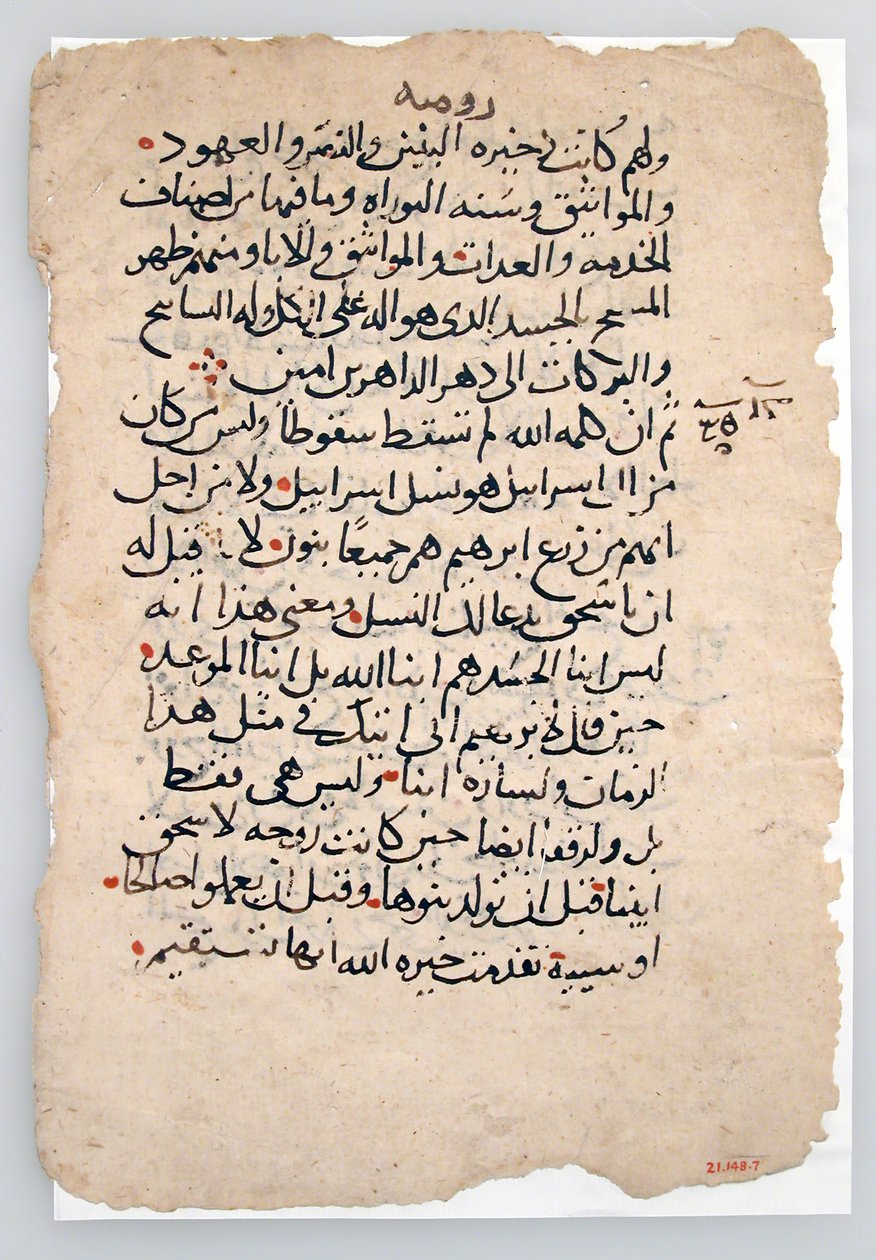 روميه
ولهم كانت خيره البنين والتدبر والعهود
والمواثيق وسنه التوراه وما فيها من اصناف
الخدمة والعدات والمواثيق والابا ومنهم ظهر
المسيح بالجسد الذى هو اله على الكل له التسابيح
والبركات الى دهر الداهرين امين
ثم ان كلمه الله لم تسقط سقوطا وليس من كان
من ال اسراييل هو نسل اسراييل ولا من اجل
انهم من زرع ابرهيم هم جميعًا بنون لانه قيل له
ان باسحق يدعا لك النسل ومعنى هذا انه
ليس ابنا الجسد هم ابنا الله بل ابنا الموعد
حين قال لابرهيم انى اتيك فى مثل هذا
الزمان ولساره ابنا وليس هى فقط
بل ولرفقا ايضا حين كانت زوجه لاسحق
ابينا قبل ان تولد بنوها وقبل ان يعملوا صالحا
او سيية تقدمت خيره الله انها تستقيم
21.148.7